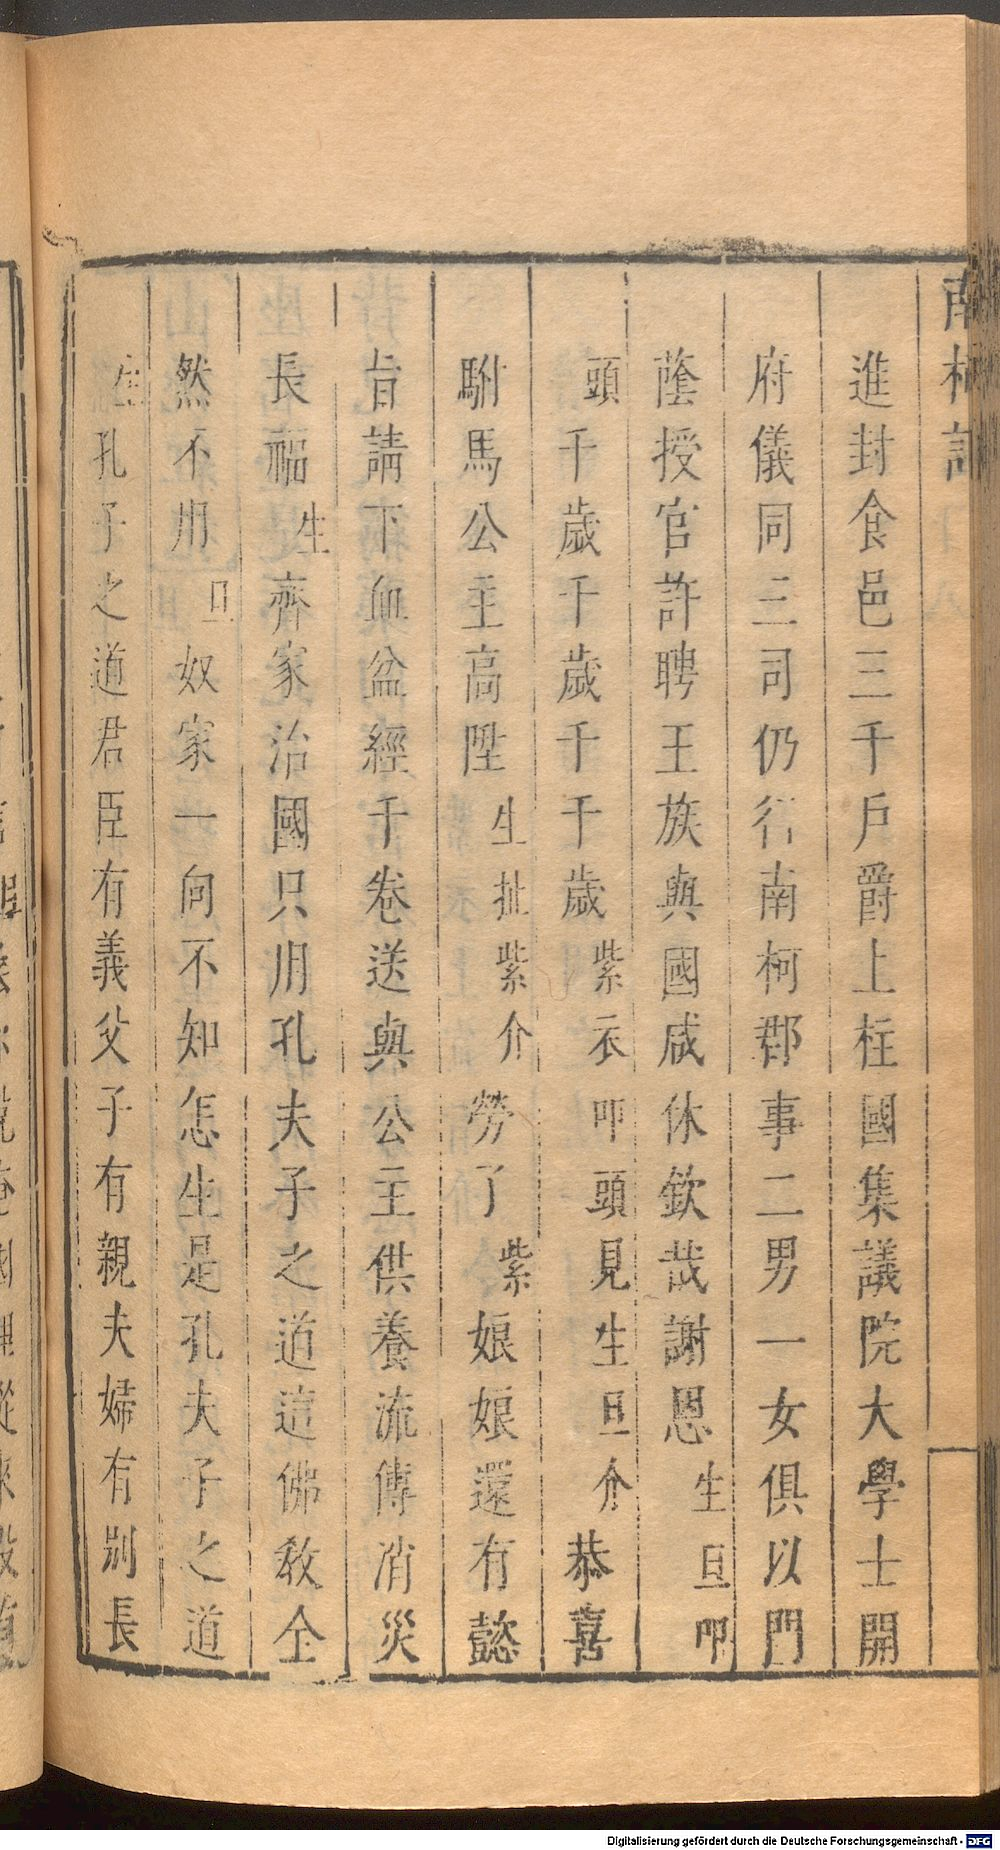 南柯記
進封食邑三千戶爵上柱國集議院大學士開
府儀同三司仍行南柯郡事二男一女俱以門
蔭授官許聘王族與國咸休欽哉謝恩生旦叩
頭千歲千歲千千歲紫衣叩頭見生旦介恭喜
駙馬公主高陞生扯紫介勞了紫娘娘還有懿
旨請下血盆經千卷送與公主供養流傳消災
長福生齊家治國只用孔夫子之道這佛教全
然不用旦奴家一向不知怎生是孔夫子之道
生孔子之道君臣有義父子有親夫婦有別長
Digitalisierung gefördert durch die Deutsche Forschungsgemeinschaft - DFG